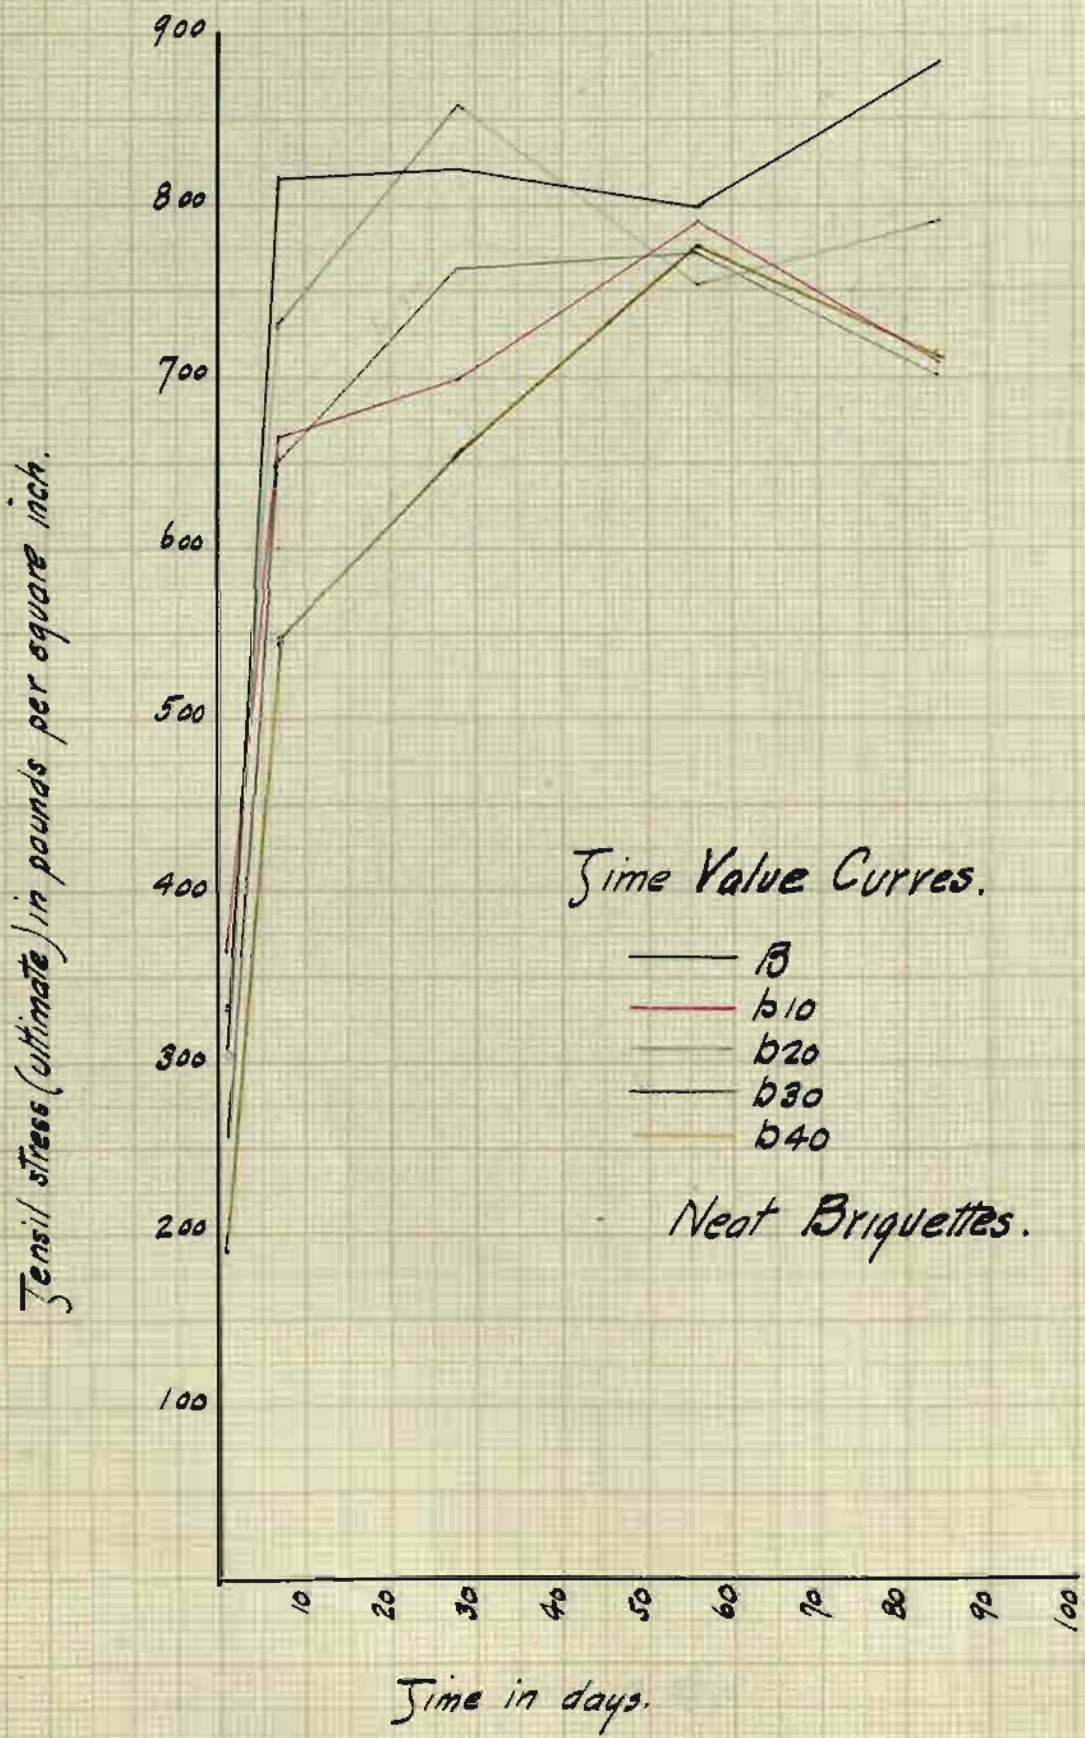 900
800
700
600
500
400
300
200
100
Tensil stress (ultimate) in pounds per square inch.
Time Value Curves.
B
b10
b20
b30
b40
Neat Briquettes.
10 20 30 40 50 60 70 80 90 100
Time in days.